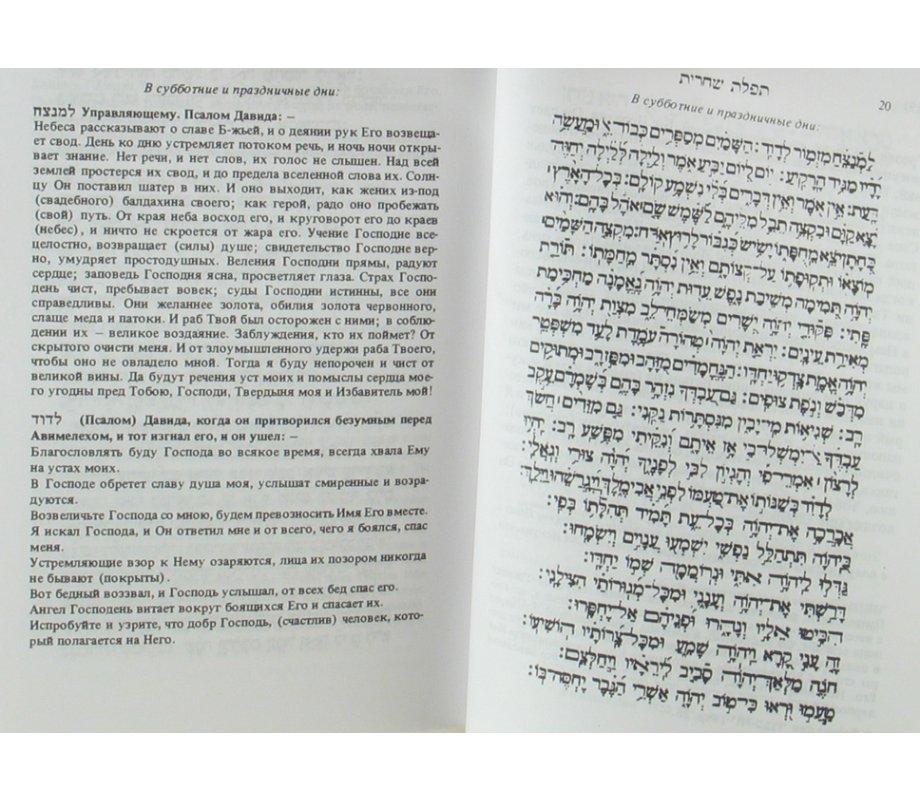 В субботние и праздничные дни:
למנצח Управляющему. Псалом Давида: –
Небеса рассказывают о славе Б-жьей, и о деянии рук Его возвеща-
ет свод. День ко дню устремляет потоком речь, и ночь ночи откры-
вает знание. Нет речи, и нет слов, их голос не слышен. Над всей
землей простерся их свод, и до предела вселенной слова их. Солн-
цу Он поставил шатер в них. И оно выходит, как жених из-под
(свадебного) балдахина своего; как герой, радо оно пробежать
(свой) путь. От края неба восход его, и круговорот его до краев
(небес), и ничто не скроется от жара его. Учение Господне все-
целостно, возвращает (силы) душе; свидетельство Господне вер-
но, умудряет простодушных. Веления Господни прямы, радуют
сердце; заповедь Господня ясна, просветляет глаза. Страх Госпо-
день чист, пребывает вовек; суды Господни истинны, все они
справедливы. Они желаннее золота, обилия золота червонного,
слаще меда и патоки. И раб Твой был осторожен с ними; в соблю-
дении их – великое воздаяние. Заблуждения, кто их поймет? От
скрытого очисти меня. И от злоумышленного удержи раба Твоего,
чтобы оно не овладело мной. Тогда я буду непорочен и чист от
великой вины. Да будут речения уст моих и помыслы сердца мое-
го угодны пред Тобою, Господи, Твердыня моя и Избавитель мой!
לדוד (Псалом) Давида, когда он притворился безумным перед
Авимелехом, и тот изгнал его, и он ушел: –
Благословлять буду Господа во всякое время, всегда хвала Ему
на устах моих.
В Господе обретет славу душа моя, услышат смиренные и возра-
дуются.
Возвеличьте Господа со мною, будем превозносить Имя Его вместе.
Я искал Господа, и Он ответил мне и от всего, чего я боялся, спас
меня.
Устремляющие взор к Нему озаряются, лица их позором никогда
не бывают (покрыты).
Вот бедный воззвал, и Господь услышал, от всех бед спас его.
Ангел Господень витает вокруг боящихся Его и спасает их.
Испробуйте и узрите, что добр Господь, (счастлив) человек, кото-
рый полагается на Него.
תפלת שחרית 20
В субботние и праздничные дни:
לַמְנַצֵּחַ מִזְמוֹר לְדָוִד: הַשָּׁמַיִם מְסַפְּרִים כְּבוֹד אֵל וּמַעֲשֵׂה
יָדָיו מַגִּיד הָרָקִיעַ: יוֹם לְיוֹם יַבִּיעַ אֹמֶר וְלַיְלָה לְּלַיְלָה יְחַוֶּה
דָּעַת: אֵין אֹמֶר וְאֵין דְּבָרִים בְּלִי נִשְׁמָע קוֹלָם: בְּכָל־הָאָרֶץ
יָצָא קַוָּם וּבִקְצֵה תֵבֵל מִלֵּיהֶם לַשֶּׁמֶשׁ שָׂם־אֹהֶל בָּהֶם: וְהוּא
כְּחָתָן יֹצֵא מֵחֻפָּתוֹ יָשִׂישׂ כְּגִבּוֹר לָרוּץ אֹרַח: מִקְצֵה הַשָּׁמַיִם
מוֹצָאוֹ וּתְקוּפָתוֹ עַל־קְצוֹתָם וְאֵין נִסְתָּר מֵחַמָּתוֹ: תּוֹרַת
יְהֹוָה תְּמִימָה מְשִׁיבַת נָפֶשׁ עֵדוּת יְהֹוָה נֶאֱמָנָה מַחְכִּימַת
פֶּתִי: פִּקּוּדֵי יְהֹוָה יְשָׁרִים מְשַׂמְּחֵי־לֵב מִצְוַת יְהֹוָה בָּרָה
מְאִירַת עֵינָיִם: יִרְאַת יְהֹוָה טְהוֹרָה עוֹמֶדֶת לָעַד מִשְׁפְּטֵי
יְהֹוָה אֱמֶת צָדְקוּ יַחְדָּו: הַנֶּחֱמָדִים מִזָּהָב וּמִפַּז רָב וּמְתוּקִים
מִדְּבַשׁ וְנֹפֶת צוּפִים: גַּם עַבְדְּךָ נִזְהָר בָּהֶם בְּשָׁמְרָם עֵקֶב
רָב: שְׁגִיאוֹת מִי־יָבִין מִנִּסְתָּרוֹת נַקֵּנִי: גַּם מִזֵּדִים חֲשֹׂךְ
עַבְדֶּךָ אַל־יִמְשְׁלוּ־בִי אָז אֵיתָם וְנִקֵּיתִי מִפֶּשַׁע רָב: יִהְיוּ
לְרָצוֹן אִמְרֵי־פִי וְהֶגְיוֹן לִבִּי לְפָנֶיךָ יְהֹוָה צוּרִי וְגֹאֲלִי:
לְדָוִד בְּשַׁנּוֹתוֹ אֶת־טַעְמוֹ לִפְנֵי אֲבִימֶלֶךְ וַיְגָרְשֵׁהוּ וַיֵּלַךְ:
אֲבָרְכָה אֶת־יְהֹוָה בְּכָל־עֵת תָּמִיד תְּהִלָּתוֹ בְּפִי:
בַּיהֹוָה תִּתְהַלֵּל נַפְשִׁי יִשְׁמְעוּ עֲנָוִים וְיִשְׂמָחוּ:
גַּדְּלוּ לַיהֹוָה אִתִּי וּנְרוֹמְמָה שְׁמוֹ יַחְדָּו:
דָּרַשְׁתִּי אֶת־יְהֹוָה וְעָנָנִי וּמִכָּל־מְגוּרוֹתַי הִצִּילָנִי:
הִבִּיטוּ אֵלָיו וְנָהָרוּ וּפְנֵיהֶם אַל־יֶחְפָּרוּ:
זֶה עָנִי קָרָא וַיהֹוָה שָׁמֵעַ וּמִכָּל־צָרוֹתָיו הוֹשִׁיעוֹ:
חֹנֶה מַלְאַךְ־יְהֹוָה סָבִיב לִירֵאָיו וַיְחַלְּצֵם:
טַעֲמוּ וּרְאוּ כִּי־טוֹב יְהֹוָה אַשְׁרֵי הַגֶּבֶר יֶחֱסֶה־בּוֹ: